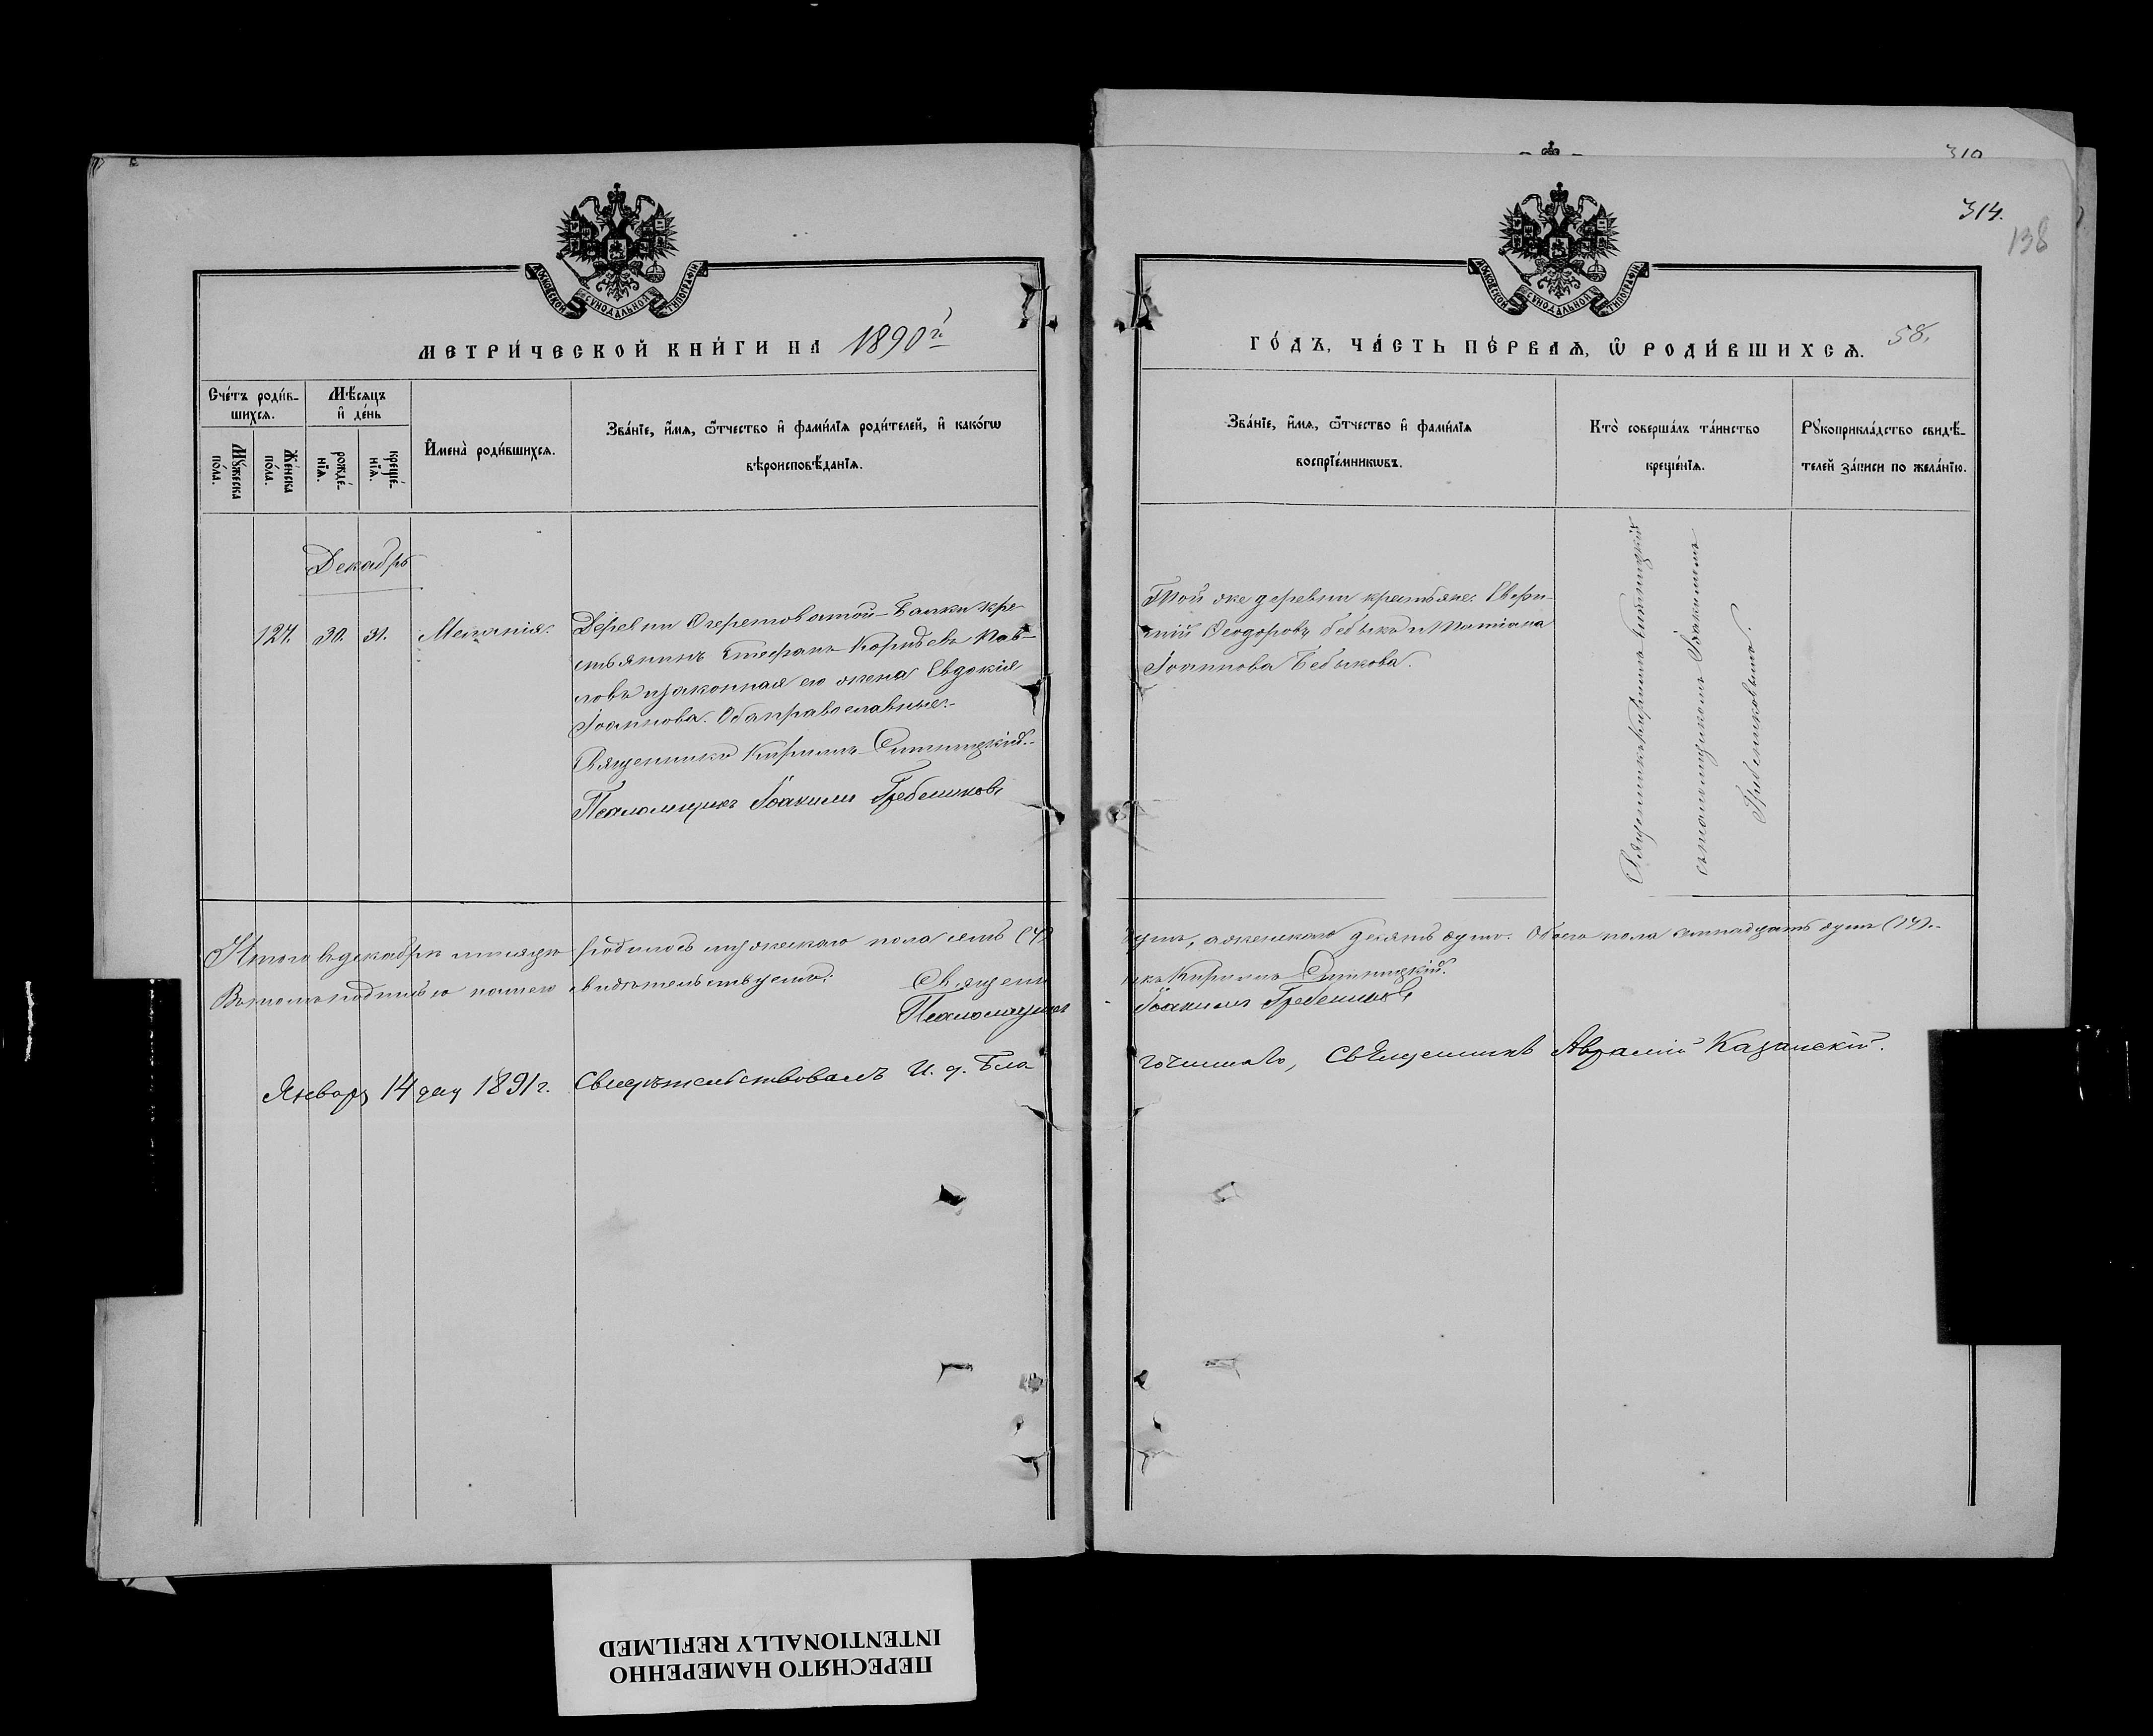 310
314.
138
МОСКОВСКОЙ СѴНОДАЛЬНОЙ ТИПОГРАФІИ.
МОСКОВСКОЙ СѴНОДАЛЬНОЙ ТИПОГРАФІИ.
МЕТРИ́ЧЕСКОЙ КНИ́ГИ НА 1890й
ГО́ДЪ, ЧА́СТЬ ПЕ́РВАѦ, Ѡ҆ РОДИ́ВШИХСѦ.
58.
Сче́тъ роди́в-
шихсѧ.
Мѣ́сѧцъ
и҆ де́нь
Мꙋ́жеска
по́ла.
Же́нска
по́ла.
рожде́-
нїѧ.
креще́-
нїѧ.
И҆мена̀ роди́вшихсѧ.
Зва́нїе, и҆́мѧ, ѻ҆́тчество и҆ фами́лїѧ роди́телей, и҆ како́гѡ
вѣроисповѣ́данїѧ.
Зва́нїе, и҆́мѧ, ѻ҆́тчество и҆ фами́лїѧ
воспрїе́мникѡвъ.
Кто̀ соверша́лъ та́инство
креще́нїѧ.
Рꙋкоприкла́дство свидѣ́-
телей за́писи по жела́нїю.
Декабрь
127. 30. 31. Меланія.
Деревни Очеретоватой-Балки кре-
стьянинъ Стефанъ Корнѣевъ Пав-
ловъ и законная его жена Евдокія
Іоаннова. Оба православные.
Священникъ Кириллъ
Псаломщикъ Іоакимъ Гребенниковъ
Той же деревни крестьяне:
Ѳеодоровъ Бебыкъ и Татіана
Іоаннова Бебыкова.
Священникъ Кириллъ
съ псаломщикомъ Іоакимомъ
Гребенниковымъ.
Итого въ декабрѣ мѣсяцѣ родилось мужескаго пола семь (7)
душъ, а женскаго десять душъ. Обоего пола семнадцать душъ (17).
Въ томъ подписью нашею свидѣтельствуемъ: Священ
никъ Кириллъ
Псаломщикъ
Іоакимъ Гребенниковъ
Января 14 дня 1891 г. Свидѣтельствовалъ И. д. Бла
гочиннаго, Священникъ Аврамій Казанскій.
ПЕРЕСНЯТО НАМЕРЕННО
INTENTIONALLY REFILMED